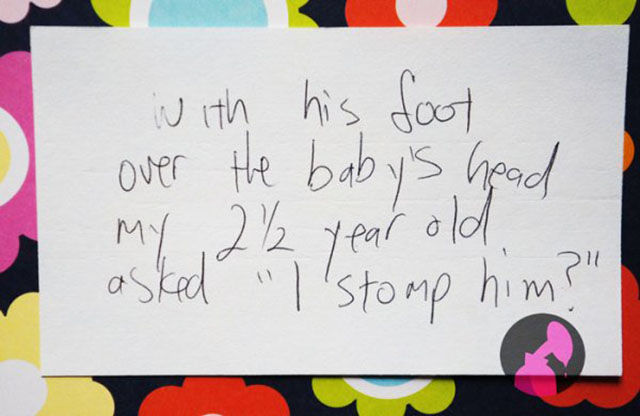 with his foot
over the baby's head
my 2 1/2 year old
asked "I stomp him?"